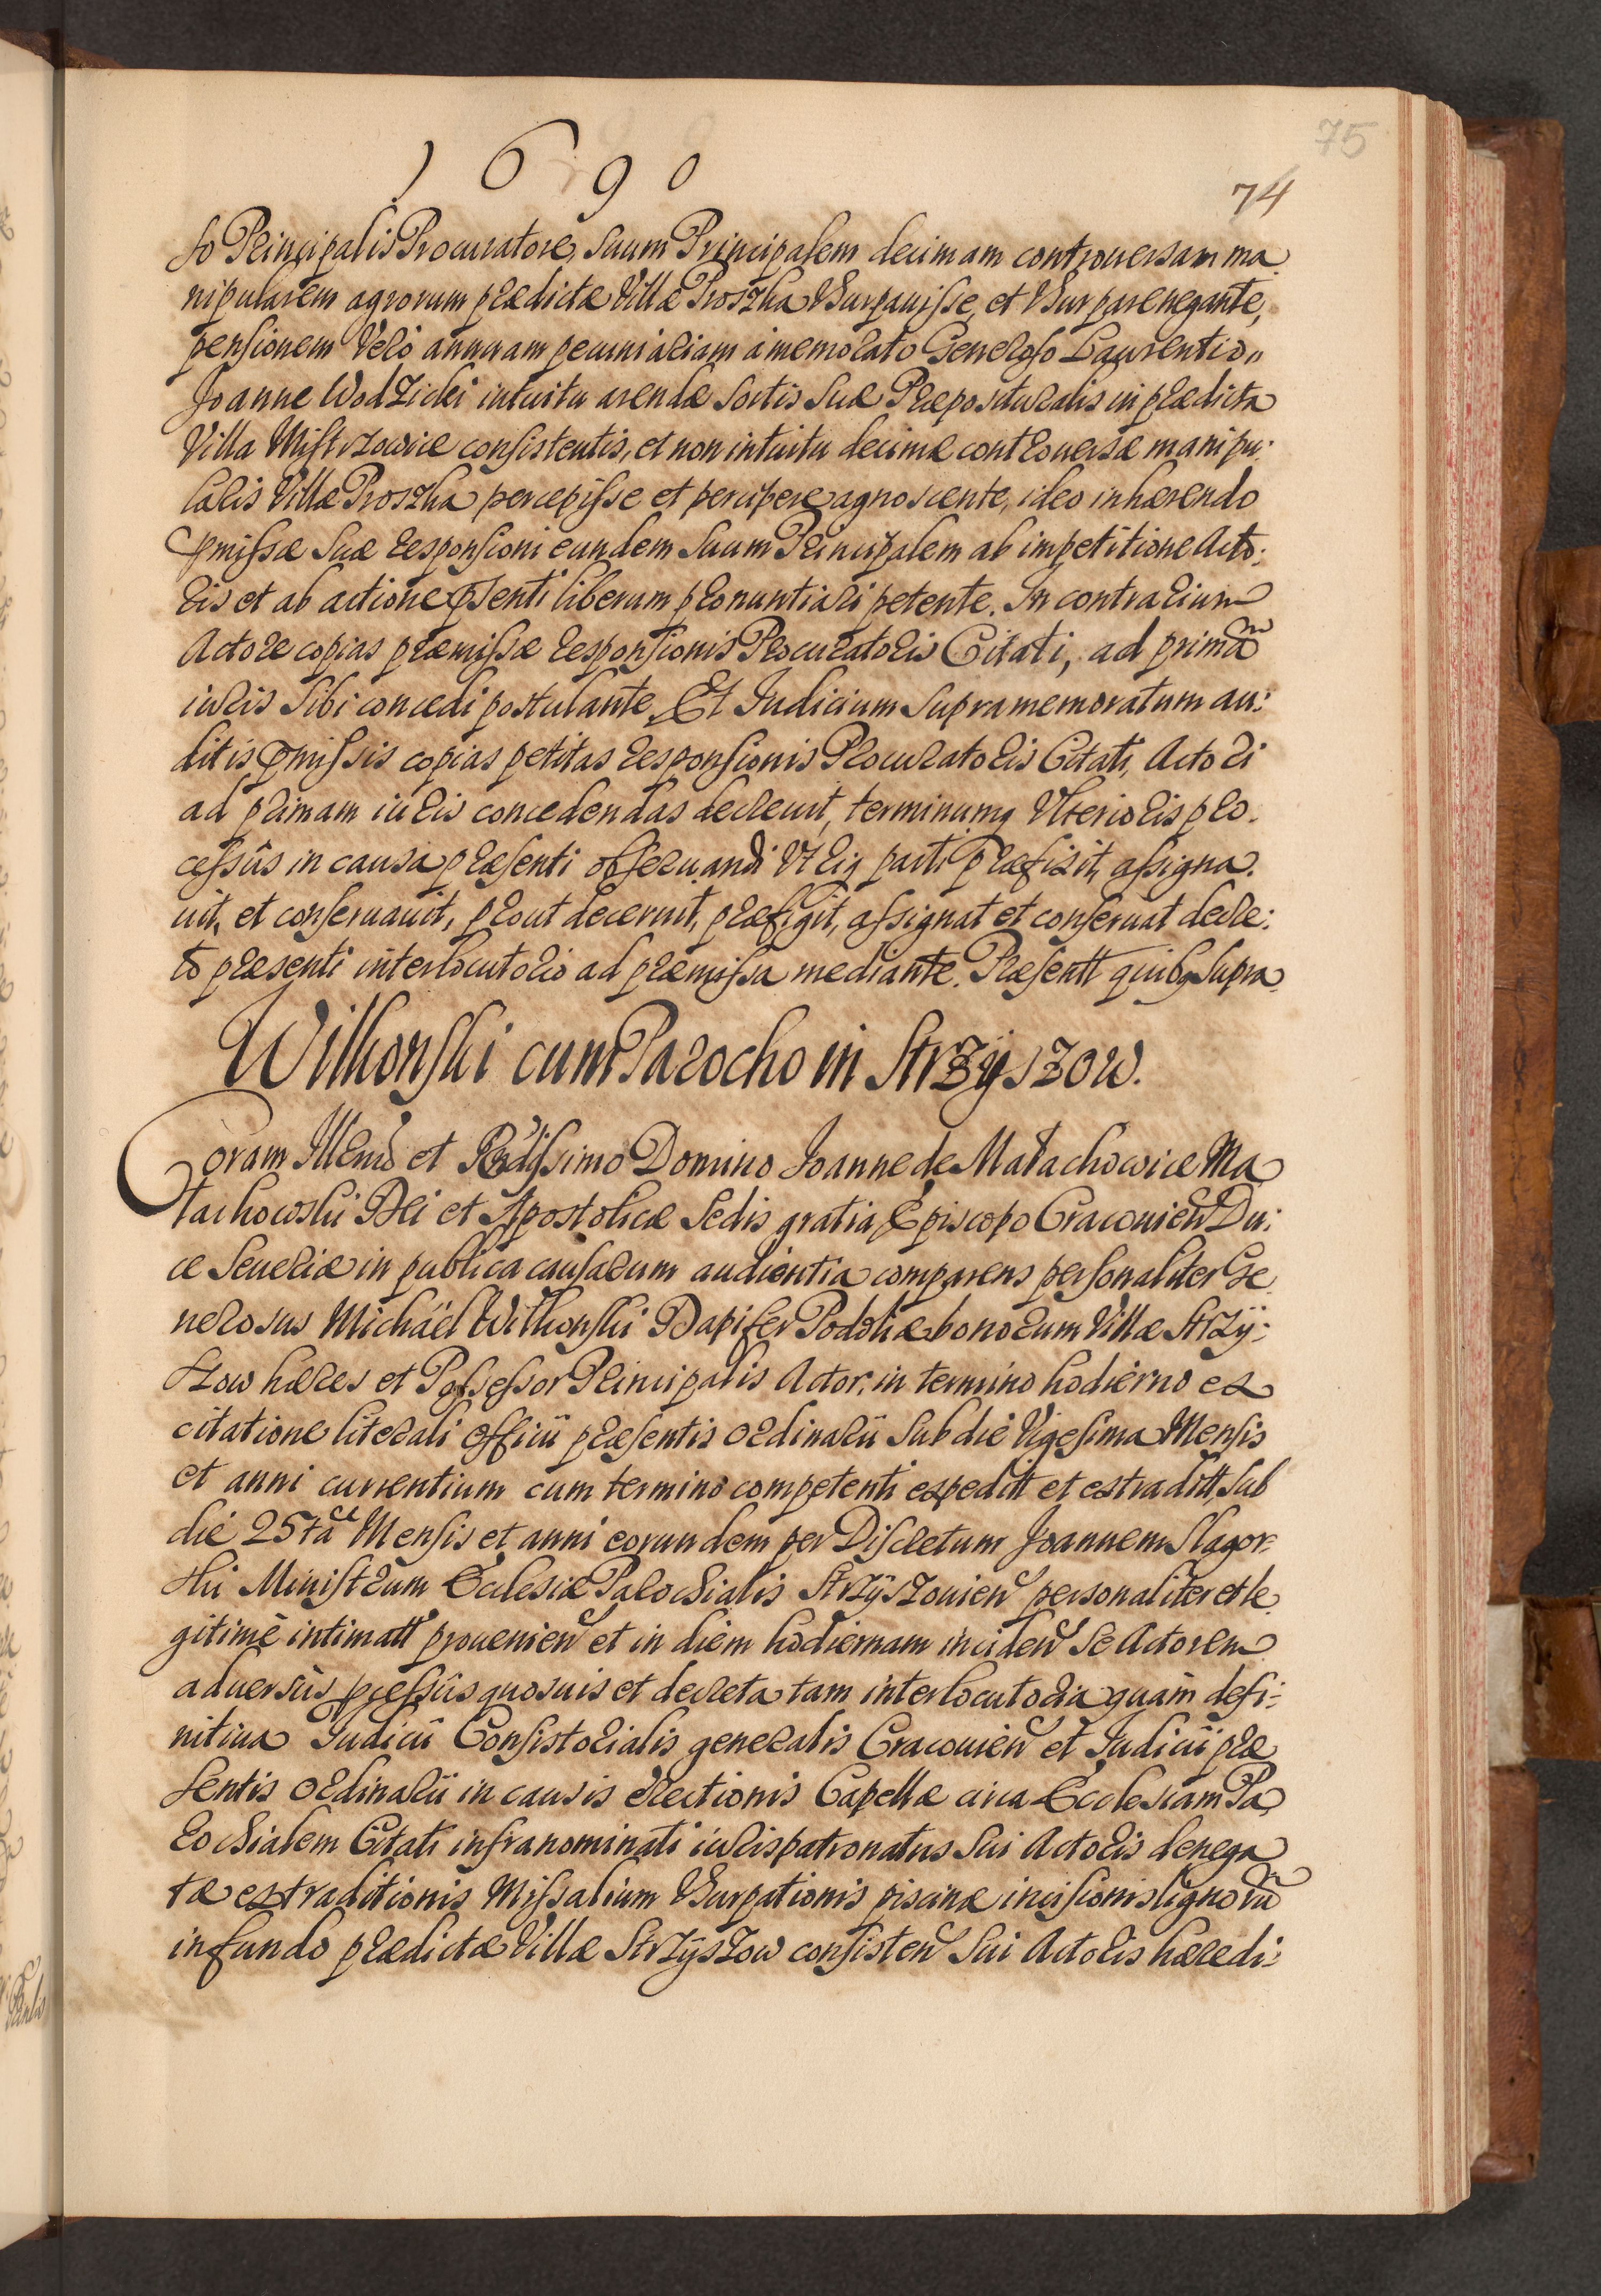 75
1690
74
so Principalis Procuratore, suum Principalem decimam controuersam ma
nipularem agrorum prædictæ Villæ Proszka Vsurpauisse, et Vsurpare negante,
pensionem Verò annuam pecuniariam à memorato Generoso Laurentio
Joanne Wodzicki intuitu arendæ sortis suæ Præposituralis in prædicta
Villa Mistrzowice consistentis, et non intuitu decimæ controuersæ manipu:
laris Villæ Proszka percepisse et percipere agnoscente, ideo inhærendo
pmissæ suæ responsioni eundem suum Principalem ab impetitione Acto:
ris et ab actione pnti liberum pronuntiari petente. In contrarium
Actore copias præmissæ responsionis Procuratoris Citati, ad primã
iuris sibi concedi postulante. Et Judicium supramemoratum au:
ditis pmissis copias petitas responsionis Procuratoris Citati, Actori
ad primam iuris concedendas decreuit, terminumq Vlterioris pro.
cessûs in causa præsenti obseruandi Vtriq parti præfixit, assigna.
uit, et conseruauit, prout decernit, præfigit, assignat et conseruat decre:
to præsenti interlocutorio ad præmissa mediante. Præsentt quibq supra
Wilkonski cum Parocho in Strzyszow.
Coram Illmo et Rndissimo Domino Joanne de Małachowice Ma
łachowski Dei et Apostolicæ Sedis gratia Episcopo Cracouien Du:
ce Seueriæ in publica causarum audientia comparens personaliter Ge
nerosus Michaël Wilkonski Dapifer Podoliæ bonorum Villæ Strzÿ:
szow hæres et Possessor Principalis Actor, in termino hodierno ex
citatione literali Officii præsentis ordinarii sub die Vigesima Mensis
et anni currentium cum termino competenti expeditt et extraditt, sub
die 25ta Mensis et anni eorundem per Discretum Joannem Slagor
ski Ministrum Ecclesiæ Parochialis Strzÿszouien personaliter et le
gitimè intimatt prouenien et in diem hodiernam inciden se Actorem
aduersùs pcessûs quosuis et decreta tam interlocutoria quàm defi:
nitiua Judicii Consistorialis generalis Cracouien et Judicii præ
sentis ordinarii in causis erectionis Capellæ circa Ecclesiam Pa
rochialem Citati infranominati iurispatronatus sui Actoris denega
tæ extraditionis Missalium Vsurpationis piscinæ incisionis lignorũ
in fundo prædictæ Villæ Strzyszow consisten sui Actoris hæredi: